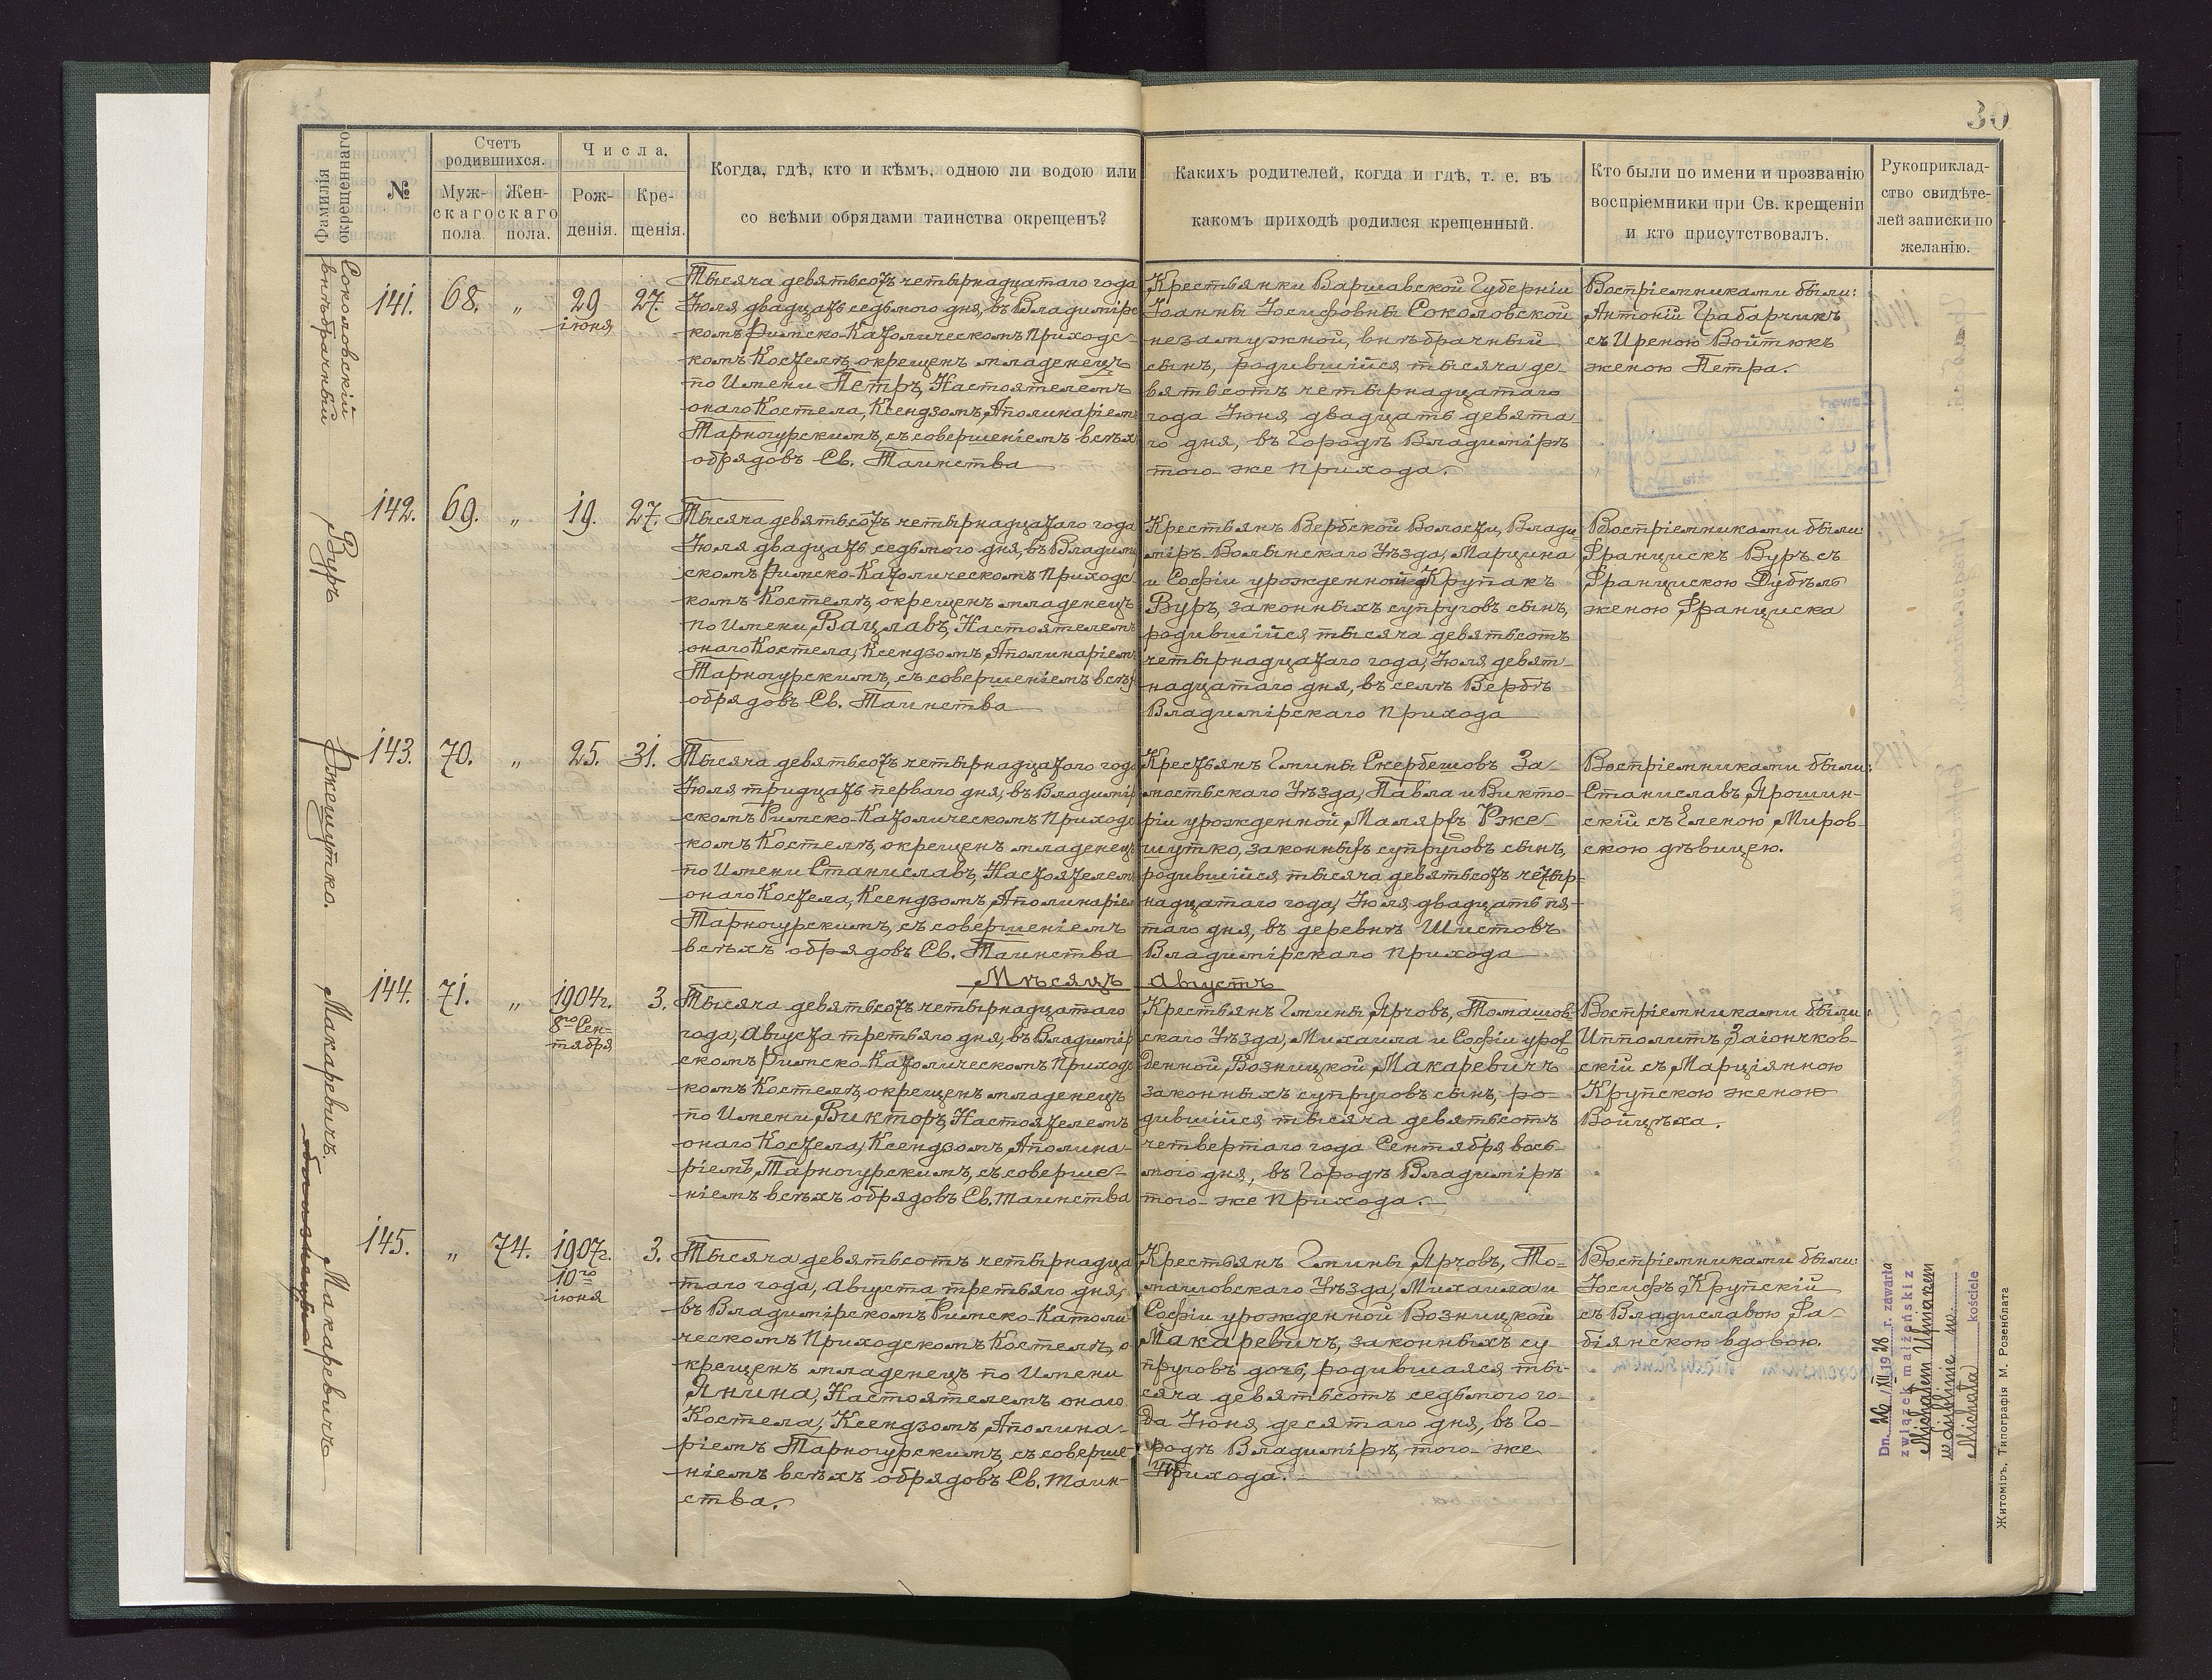 30
Фамилія
окрещеннаго
№
Счетъ
родившихся.
Муж-
скаго
пола
Жен-
скаго
пола.
Числа.
Рож-
денія.
Кре-
щенія.
Когда, гдѣ, кто и кѣмъ, одною ли водою или
со всѣми обрядами таинства окрещенъ?
Какихъ родителей, когда и гдѣ, т. е. въ
какомъ приходѣ родился крещенный.
Кто были по имени и прозванію
воспріемники при Св. крещеніи
и кто присутствовалъ.
Рукоприклад-
ство свидѣте-
лей записки по
желанію.
Соколовскій
внѣбрачный
141. 68. „ 29 27.
іюня
Тысяча девятьсотъ четырнадцатаго года
Іюля двадцать седьмого дня, въ Владимірс
комъ Римско-Католическомъ Приходс-
комъ Костелѣ, окрещенъ младенецъ
по Имени Петръ, Настоятелемъ
онаго Костела, Ксендзомъ Аполинаріемъ
Тарногурскимъ, съ совершеніемъ всѣхъ
обрядовъ Св. Таинства
Крестьянки Варшавской Губерніи
Іоанны Іосифовны Соколовской
незамужной, внѣбрачный
сынъ, родившійся тысяча де-
вятьсотъ четырнадцатаго
года Іюня двадцать девята-
го дня, въ Городѣ Владимірѣ
того-же Прихода.
Воспріемниками были:
Антоній Грабарчикъ
съ Иреною Войтюкъ
женою Петра.
Вуръ
142. 69. „ 19. 27.
Тысяча девятьсотъ четырнадцатаго года
Іюля двадцать седьмого дня, въ Владимі
скомъ Римско-Католическомъ Приходс-
комъ Костелѣ, окрещенъ младенецъ
по Имени Вацлавъ, Настоятелемъ
онаго Костела, Ксендзомъ Аполинаріемъ
Тарногурскимъ, съ совершеніемъ всѣх
обрядовъ Св. Таинства
Крестьянъ Вербской Волости, Влади-
міръ-Волынскаго Уѣзда, Марцина
и Софіи урожденной Крупакъ
Вуръ, законныхъ супруговъ сынъ,
родившійся тысяча девятьсотъ
четырнадцатаго года, Іюля девят-
надцатаго дня, въ селѣ Вербѣ
Владимірскаго Прихода
Воспріемниками были
Францискъ Вуръ съ
Францискою Дубѣль
женою Франциска
Ржешутко.
143. 70. „ 25. 31.
Тысяча девятьсотъ четырнадцатаго года
Іюля тридцать перваго дня, въ Владимір
скомъ Римско-Католическомъ Приходс
комъ Костелѣ, окрещенъ младенецъ
по Имени Станиславъ, Настоятелем
онаго Костела, Ксендзомъ Аполинаріем
Тарногурскимъ, съ совершеніемъ
всѣхъ обрядовъ Св. Таинства
Крестьянъ Гмины Скербешовъ За-
мостьскаго Уѣзда, Павла и Викто-
ріи урожденной Маляръ Рже-
шутко, законныхъ супруговъ сынъ,
родившійся тысяча девятьсотъ четыр-
надцатаго года, Іюля двадцать пя-
таго дня, въ деревнѣ Шистовъ
Владимірскаго Прихода
Воспріемниками были:
Станиславъ Ярошин-
скій съ Еленою Миров-
скою дѣвицею.
Мѣсяцъ Августъ
Макаревичъ.
144. 71. „ 1904г. 3.
8го Сен-
тября
Тысяча девятьсотъ четырнадцатаго
года, Августа третьяго дня, въ Владимір
скомъ Римско-Католическомъ Приходс
комъ Костелѣ, окрещенъ младенецъ
по Имени Викторъ, Настоятелемъ
онаго Костела, Ксендзомъ Аполина-
ріемъ Тарногурскимъ, съ соверше-
ніемъ всѣхъ обрядовъ Св. таинства
Крестьянъ Гмины Ярчовъ, Томашов-
скаго Уѣзда, Михаила и Софіи урож
денной Возницкой Макаревичъ
законныхъ супруговъ сынъ, ро-
дившійся тысяча девятьсотъ
четвертаго года Сентября вось-
мого дня, въ Городѣ Владимірѣ
того-же Прихода.
Воспріемниками были:
Ипполитъ Заіончков-
скій съ Марціянною
Крупскою женою
Войцѣха.
Макаревичъ
145. „ 74. 1907г. 3.
10го
іюня
Тысяча девятьсотъ четырнадца
таго года, Августа третьяго дня,
въ Владимірскомъ Римско-Католи
ческомъ Приходскомъ Костелѣ, о
крещенъ младенецъ по Имени
Янина, Настоятелемъ онаго
Костела, Ксендзомъ Аполина-
ріемъ Тарногурскимъ, съ соверше-
ніемъ всѣхъ обрядовъ Св. Таин-
ства.
Крестьянъ Гмины Ярчовъ, То-
машовскаго Уѣзда, Михаила и
Софіи урожденной Возницкой
Макаревичъ, законныхъ су-
пруговъ дочь, родившаяся ты-
сяча девятьсотъ седьмого го-
да Іюня десятаго дня, въ Го-
родѣ Владимірѣ, того-же
Прихода.
Воспріемниками были:
Іосифъ Крупскій
съ Владиславою Фа-
біянскою вдовою.
Dn. 26/XII 1928 r. zawarła
związek małżeński z
Michałem
w Lublinie w
kościele
Michała
Житоміръ, Типографія М. Розенблата